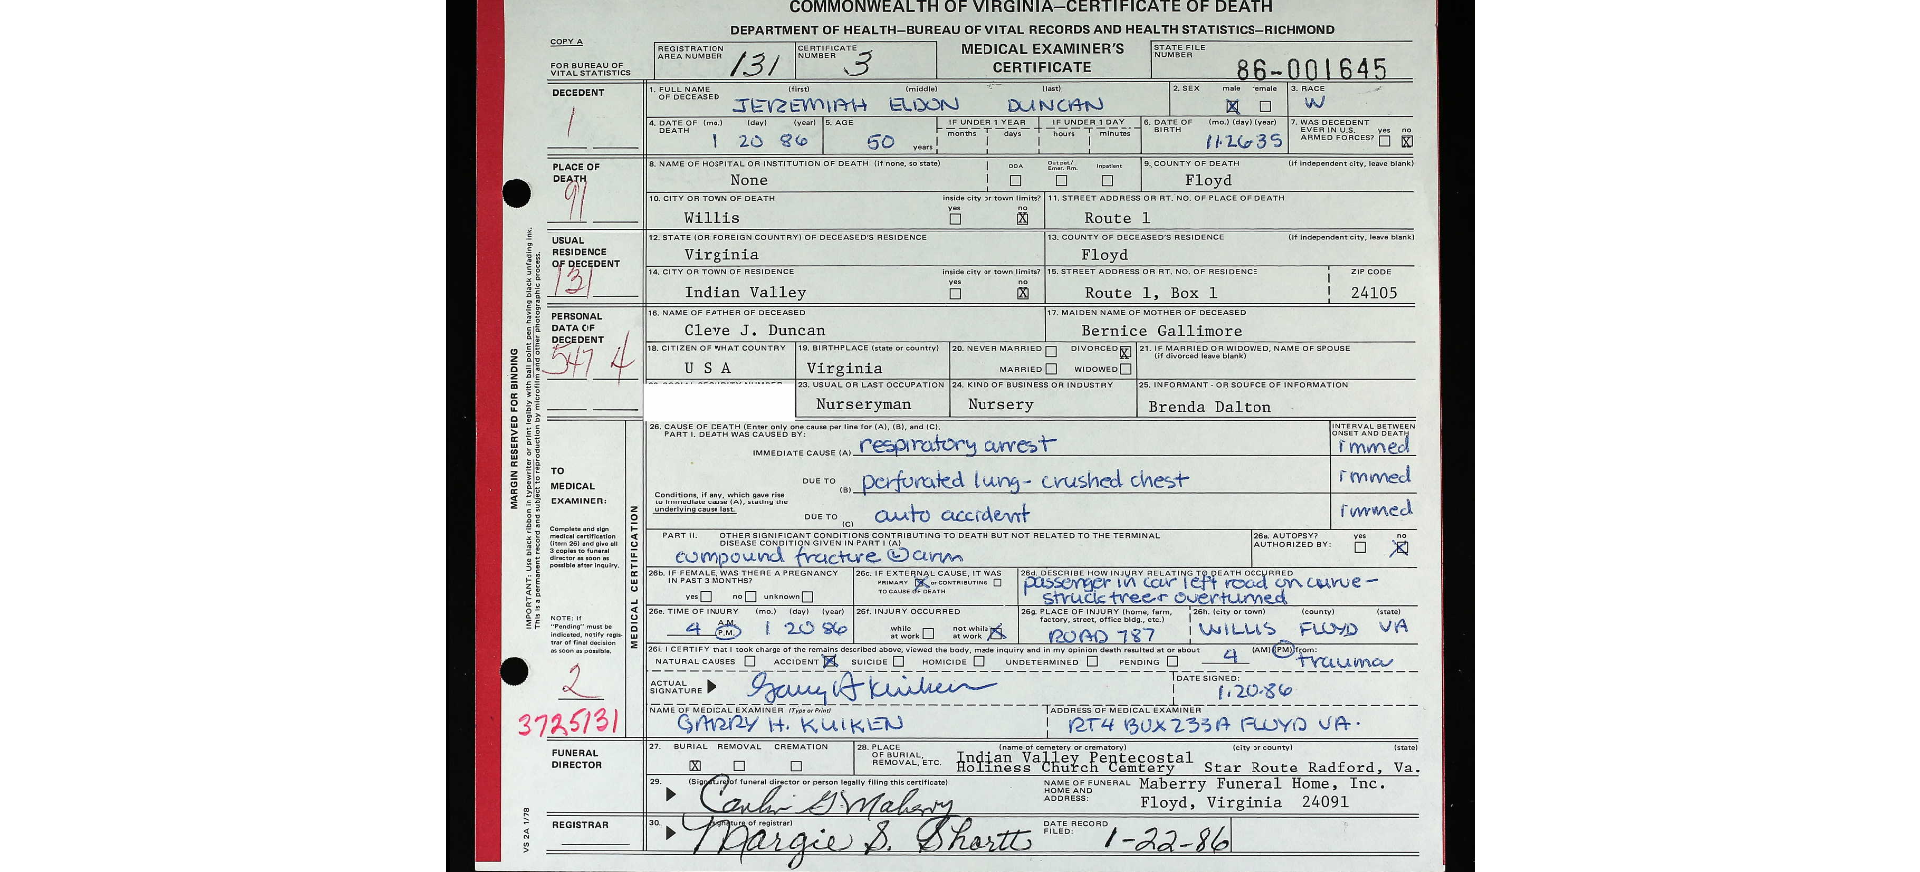 COMMONWEALTH OF VIRGINIA—CERTIFICATE OF DEATH
DEPARTMENT OF HEALTH—BUREAU OF VITAL RECORDS AND HEALTH STATISTICS—RICHMOND
COPY A
FOR BUREAU OF VITAL STATISTICS
REGISTRATION AREA NUMBER 131
CERTIFICATE NUMBER 3
MEDICAL EXAMINER'S CERTIFICATE
STATE FILE NUMBER 86-001645
DECEDENT
1
1. FULL NAME OF DECEASED (first) (middle) (last)
JEREMIAH ELDON DUNCAN
2. SEX male X female
3. RACE W
4. DATE OF DEATH (mo.) (day) (year) 1 20 86
5. AGE 50 years
IF UNDER 1 YEAR months days
IF UNDER 1 DAY hours minutes
6. DATE OF BIRTH (mo.) (day) (year) 11.26 35
7. WAS DECEDENT EVER IN U.S. ARMED FORCES? yes no X
PLACE OF DEATH
91
8. NAME OF HOSPITAL OR INSTITUTION OF DEATH (if none, so state)
None
DOA Outpat/ Emer. Rm. Inpatient
9. COUNTY OF DEATH (if independent city, leave blank)
Floyd
10. CITY OR TOWN OF DEATH inside city or town limits? yes no X
Willis
11. STREET ADDRESS OR RT. NO. OF PLACE OF DEATH
Route 1
USUAL RESIDENCE OF DECEDENT
131
12. STATE (OR FOREIGN COUNTRY) OF DECEASED'S RESIDENCE
Virginia
13. COUNTY OF DECEASED'S RESIDENCE (if independent city, leave blank)
Floyd
14. CITY OR TOWN OF RESIDENCE inside city or town limits? yes no X
Indian Valley
15. STREET ADDRESS OR RT. NO. OF RESIDENCE ZIP CODE
Route 1, Box 1 24105
PERSONAL DATA OF DECEDENT
547 4
16. NAME OF FATHER OF DECEASED
Cleve J. Duncan
17. MAIDEN NAME OF MOTHER OF DECEASED
Bernice Gallimore
18. CITIZEN OF WHAT COUNTRY
U S A
19. BIRTHPLACE (state or country)
Virginia
20. NEVER MARRIED DIVORCED X
MARRIED WIDOWED
21. IF MARRIED OR WIDOWED, NAME OF SPOUSE (if divorced leave blank)
23. USUAL OR LAST OCCUPATION
Nurseryman
24. KIND OF BUSINESS OR INDUSTRY
Nursery
25. INFORMANT - OR SOURCE OF INFORMATION
Brenda Dalton
MARGIN RESERVED FOR BINDING
IMPORTANT: Use black ribbon in typewriter or print legibly with ball point pen having black unfading ink.
This is a permanent record and subject to reproduction by microfilm and other photographic process.
MEDICAL CERTIFICATION
TO MEDICAL EXAMINER:
Complete and sign medical certification (item 26) and give all 3 copies to funeral director as soon as possible after inquiry.
NOTE: If "Pending" must be indicated, notify registrar of final decision as soon as possible.
2
3725131
26. CAUSE OF DEATH (Enter only one cause per line for (A), (B), and (C).
PART I. DEATH WAS CAUSED BY:
INTERVAL BETWEEN ONSET AND DEATH
IMMEDIATE CAUSE (A) respiratory arrest immed
DUE TO (B) perforated lung - crushed chest immed
Conditions, if any, which gave rise to immediate cause (A), stating the underlying cause last.
DUE TO (C) auto accident immed
PART II. OTHER SIGNIFICANT CONDITIONS CONTRIBUTING TO DEATH BUT NOT RELATED TO THE TERMINAL DISEASE CONDITION GIVEN IN PART I (A)
compound fracture Ⓛ arm
26a. AUTOPSY? yes no X
AUTHORIZED BY:
26b. IF FEMALE, WAS THERE A PREGNANCY IN PAST 3 MONTHS? yes no unknown
26c. IF EXTERNAL CAUSE, IT WAS PRIMARY X or CONTRIBUTING TO CAUSE OF DEATH
26d. DESCRIBE HOW INJURY RELATING TO DEATH OCCURRED
passenger in car left road on curve - struck tree + overturned
26e. TIME OF INJURY (mo.) (day) (year)
4 A.M. P.M. 1 20 86
26f. INJURY OCCURRED while at work not while at work X
26g. PLACE OF INJURY (home, farm, factory, street, office bldg., etc.)
ROAD 787
26h. (city or town) (county) (state)
WILLIS FLOYD VA
26i. I CERTIFY that I took charge of the remains described above, viewed the body, made inquiry and in my opinion death resulted at or about 4 (AM) (PM) from:
NATURAL CAUSES ACCIDENT X SUICIDE HOMICIDE UNDETERMINED PENDING trauma
ACTUAL SIGNATURE Garry H Kuiken
DATE SIGNED: 1.20.86
NAME OF MEDICAL EXAMINER (Type or Print)
GARRY H. KUIKEN
ADDRESS OF MEDICAL EXAMINER
RT4 BOX 233A FLOYD VA.
FUNERAL DIRECTOR
27. BURIAL X REMOVAL CREMATION
28. PLACE OF BURIAL, REMOVAL, ETC. (name of cemetery or crematory) (city or county) (state)
Indian Valley Pentecostal
Holiness Church Cemtery Star Route Radford, Va.
29. (Signature of funeral director or person legally filing this certificate)
NAME OF FUNERAL HOME AND ADDRESS:
Maberry Funeral Home, Inc.
Floyd, Virginia 24091
REGISTRAR
30. (signature of registrar)
Margie S. Shortt
DATE RECORD FILED: 1-22-86
VS 2A 1/78